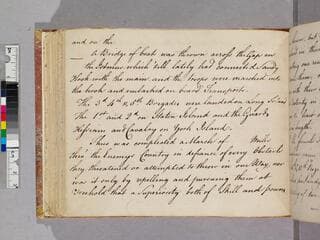 and on the
A Bridge of boats was thrown across the Gap in
the Isthmus which till lately had connected Sandy
Hook with the main and the troops were marched into
the hook and embarked on board Transports.
The 3d 4th & 5th Brigades were landed on Long Island
The 1st and 2d on Staten Island and the Guards
Hessians and Cavalry on York Island.
Thus was compleated a March of Miles
thro' the Enemys Country in defiance of every Obstacle
they threatned or attempted to throw in our Way, nor
was it only by repelling and pursuing them at
Freehold that a Superiority both of Skill and powers